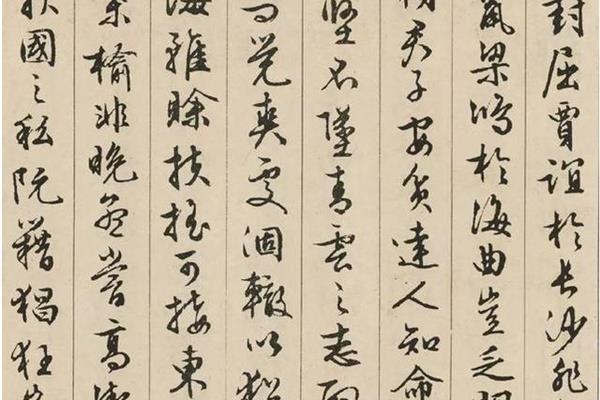 封屈賈誼於長沙非
竄梁鴻於海曲豈乏明
君子安貧達人知命
堅不墜青雲之志
而覺爽處涸轍以猶
海雖賒扶搖可接東
桑榆非晚孟嘗高潔
國之私阮籍猖狂